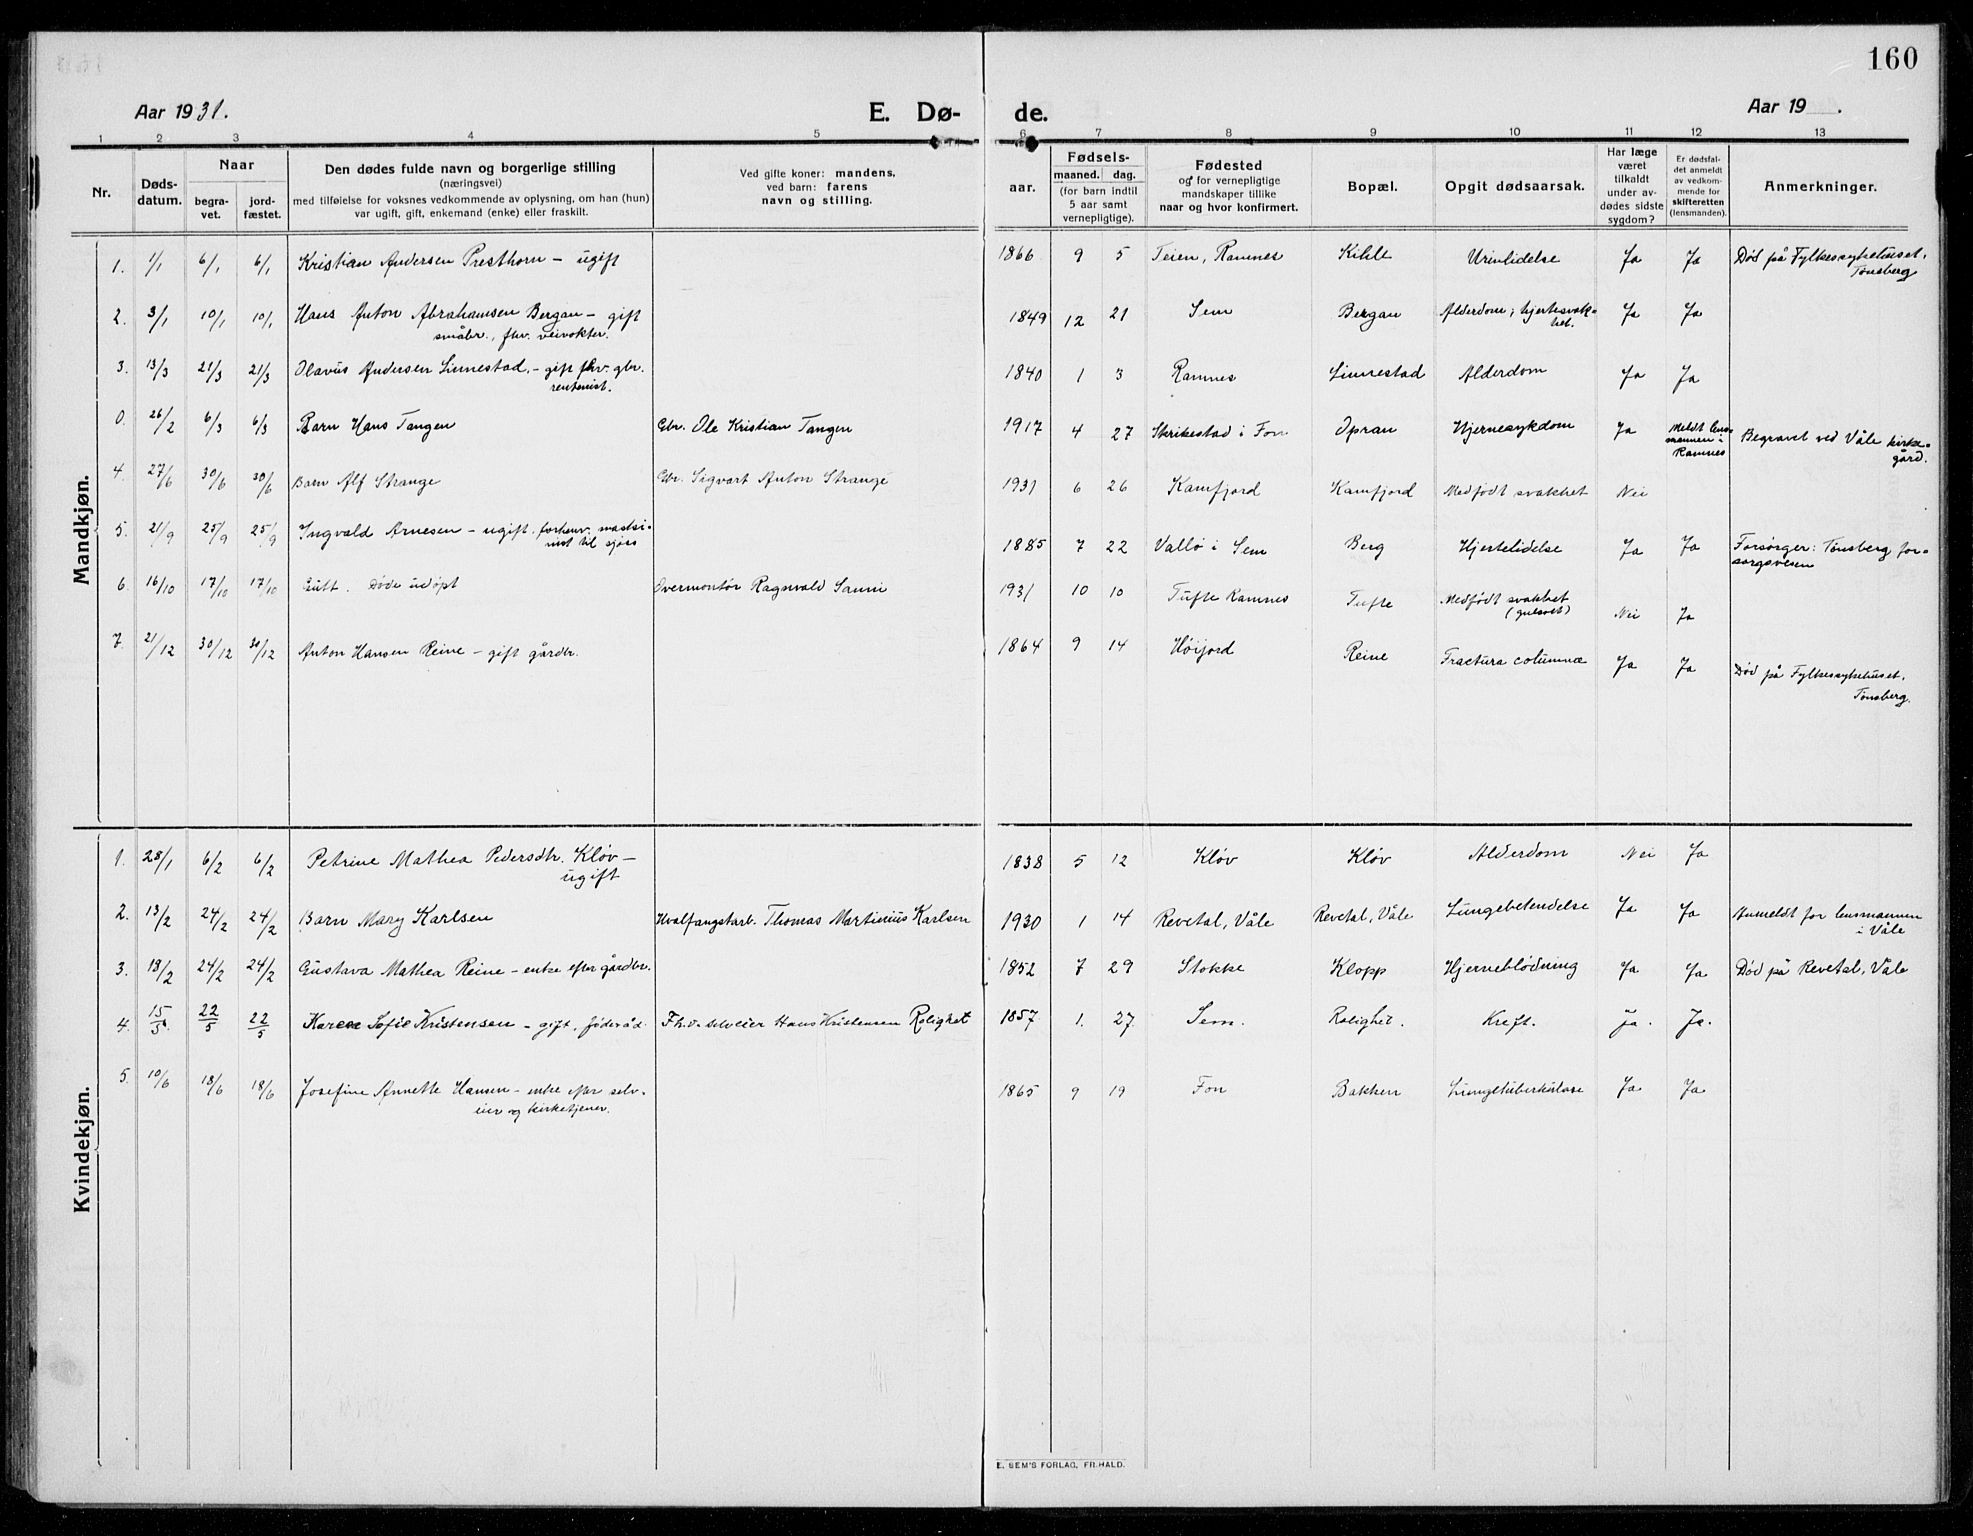 160
Aar 1931.
E. Dø- de.
Aar 19 .
1 2 3 4 5 6 7 8 9 10 11 12 13
Nr.
Døds-
datum.
Naar
begra-
vet.
jord-
fæstet.
Den dødes fulde navn og borgerlige stilling
(næringsvei)
med tilføielse for voksnes vedkommende av oplysning, om han (hun)
var ugift, gift, enkemand (enke) eller fraskilt.
Ved gifte koner: mandens,
ved barn: farens
navn og stilling.
aar.
Fødsels-
maaned. dag.
(for barn indtil
5 aar samt
vernepligtige).
Fødested
og for vernepligtige
mandskaper tillike
naar og hvor konfirmert.
Bopæl.
Opgit dødsaarsak.
Har læge
været
tilkaldt
under av-
dødes sidste
sygdom?
Er dødsfal-
det anmeldt
av vedkom-
mende for
skifteretten
(lensmanden).
Anmerkninger.
Mandkjøn.
1. 1/1 6/1 6/1 Kristian Andersen Presthorn - ugift 1866 9 5 Teien, Ramnes Kihle Urinlidelse Ja Ja Død på Fylkessykehuset,
Tønsberg
2. 3/1 10/1 10/1 Hans Anton Abrahamsen Bergan - gift 1849 12 21 Sem Bergan Alderdom; hjertesvak-
het. Ja Ja
småbr., fhv. veivokter.
3. 13/3 21/3 21/3 Olavus Andersen Linnestad, - gift fhv. gbr. 1840 1 3 Ramnes Linnestad Alderdom Ja Ja
rentenist.
0. 26/2 6/3 6/3 Barn Hans Tangen Gbr. Ole Kristian Tangen 1917 4 27 Skrikestad i Fon Opran Hjernesykdom Ja Meldt lens-
mannen i
Ramnes Begravet ved Våle kirke-
gård.
4. 27/6 30/6 30/6 Barn Alf Strange Gbr. Sigvart Anton Strange 1931 6 26 Kamfjord Kamfjord Medfødt svakhet Nei
5. 21/9 25/9 25/9 Ingvald Arnesen - ugift, forhenv. maski-
nist til sjøss 1885 7 22 Vallø i Sem Berg Hjertelidelse Ja Ja Forsørger: Tønsberg for-
sorgsvesen
6. 16/10 17/10 17/10 Gutt. Døde udøpt Overmontør Ragnvald Sanni 1931 10 10 Tufte Ramnes Tufte Medfødt svakhet
(gulsott) Nei Ja
7. 21/12 30/12 30/12 Anton Hansen Reine - gift gårdbr. 1864 9 14 Høijord Reine Fractura columnæ Ja Ja Død på Fylkessykehuset,
Tønsberg.
Kvindekjøn.
1. 28/1 6/2 6/2 Petrine Mathea Pedersdtr. Kløv -
ugift 1838 5 12 Kløv Kløv Alderdom Nei Ja
2. 13/2 24/2 24/2 Barn Mary Karlsen Hvalfangstarb. Thomas Martinius Karlsen 1930 1 14 Revetal, Våle Revetal, Våle Lungebetendelse Ja Ja Anmeldt for lensmannen
i Våle
3. 18/2 24/2 24/2 Gustava Mathea Reine - enke efter gårdbr. 1852 7 29 Stokke Klopp Hjerneblødning Ja Ja Død på Revetal, Våle
4. 15/5. 22/5 22/5 Karen Sofie Kristensen - gift, føderåd. Fhv. selveier Hans Kristensen Rolighet 1857 1. 27 Sem. Rolighet. Kreft. Ja. Ja.
5. 10/6 18/6 18/6 Josefine Annette Hansen - enke efter selv-
eier og kirketjener. 1865 9 19 Fon Bakken Lungetuberkulose Ja Ja
E. SEM'S FORLAG, FR.HALD.